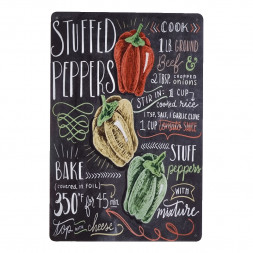 STUFFED
PEPPERS
COOK
1 LB. GROUND
Beef &
2 TBSP. CHOPPED ONIONS
STIR IN: 1 CUP
cooked rice
1 TSP. SALT, 1 GARLIC CLOVE
1 CUP tomato SAUCE
BAKE
(covered in FOIL)
350°F for 45 min.
top WITH cheese
STUFF
peppers
WITH
mixture